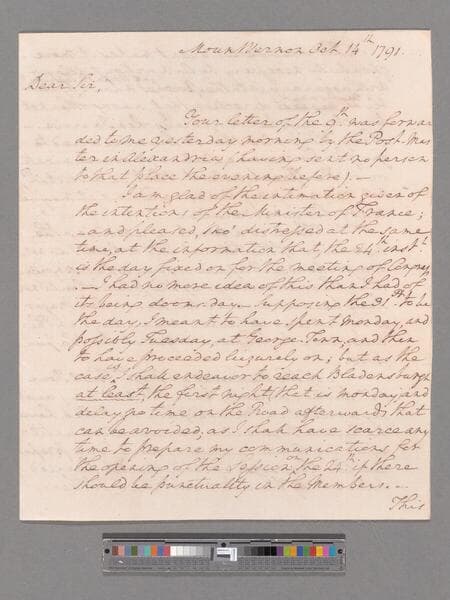 Mount Vernon Oct. 14th 1791.
Dear Sir,
Your letter of the 9th was forwar
ded to me yesterday morning by the Post Mas
ter in Alexandria (having sent no person
to that place the evening before).—
I am glad of the intimation given of
the intentions of the Minister of France;
—and pleased, tho' distressed at the same
time, at the information that, the 24th inst.
is the day fixed on for the meeting of Congress
.—I had no more idea of this than I had of
its being doomsday.—Supposing the 31st to be
the day, I meant to have spent Monday, and
possibly Tuesday, at George Town, and then
to have proceeded leizurely on; but as the
case is I shall endeavor to reach Bladensburgh
at least the first night, that is monday, and
delay no time on the Road afterwards that
can be avoided, as I shall have scarce any
time to prepare my communications for
the opening of the Session on the 24th if there
should be punctuality in the Members.—
This